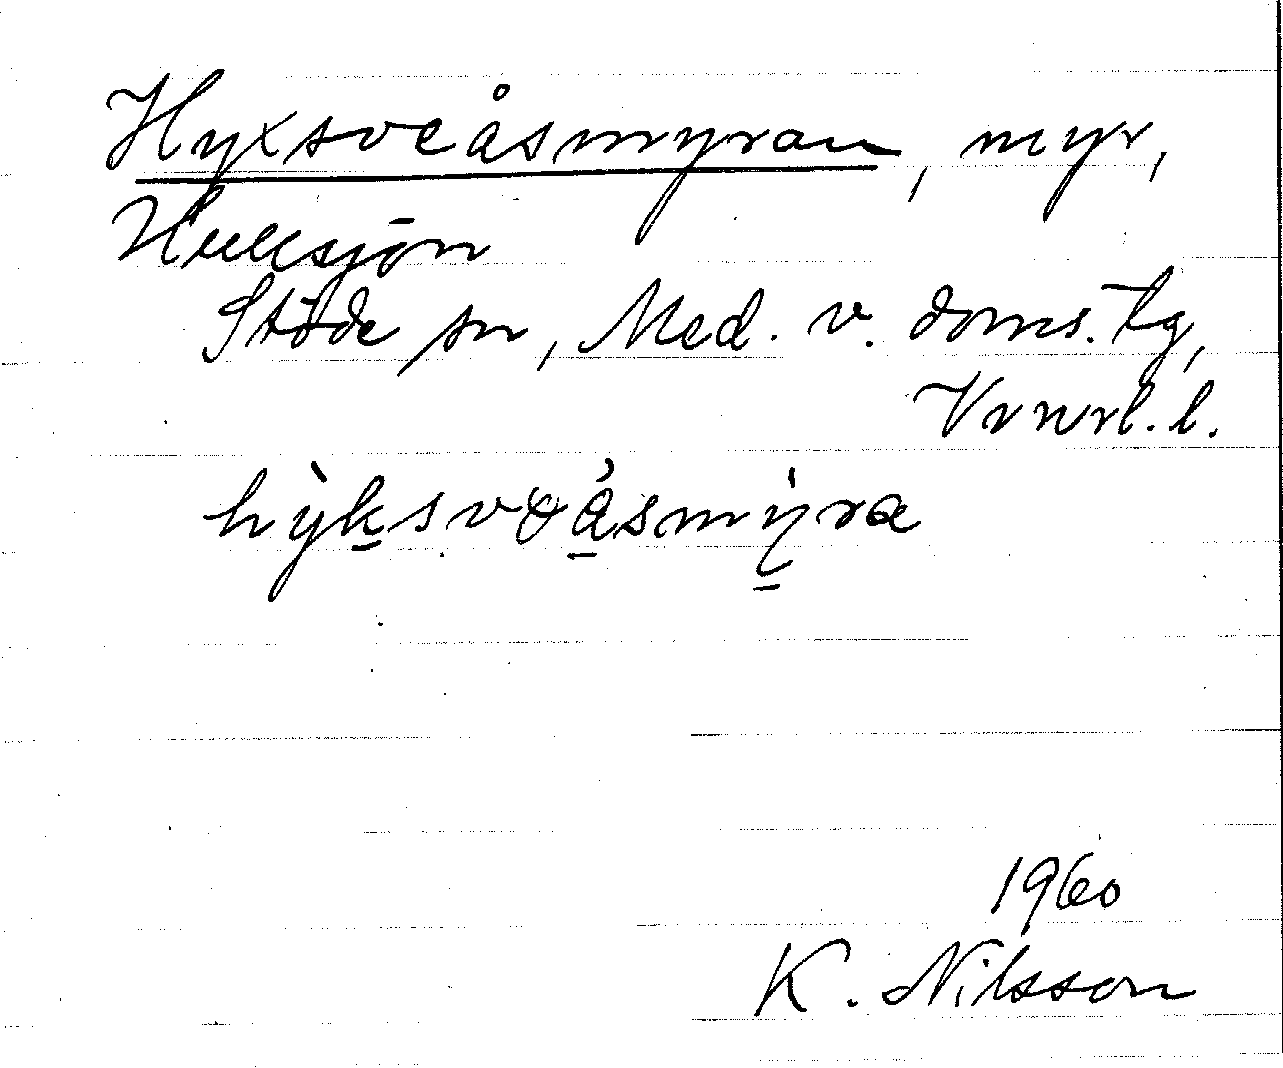 Hyxsveåsmyran, myr,
Huksjön
Stöde sn, Med. v. doms. tg,
Vrnrl. l.
hy̌ksvɵåsmỳra
1960
K. Nilsson